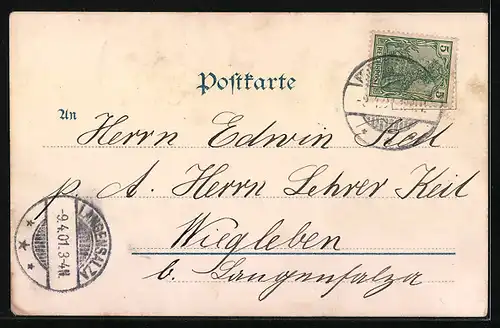 Postkarte
An
5
5
Herrn Edwin
p. A. Herrn Lehrer Keil
Wiegleben
b. Langensalza
LANGENSALZA
-9.4.01.3-4N.